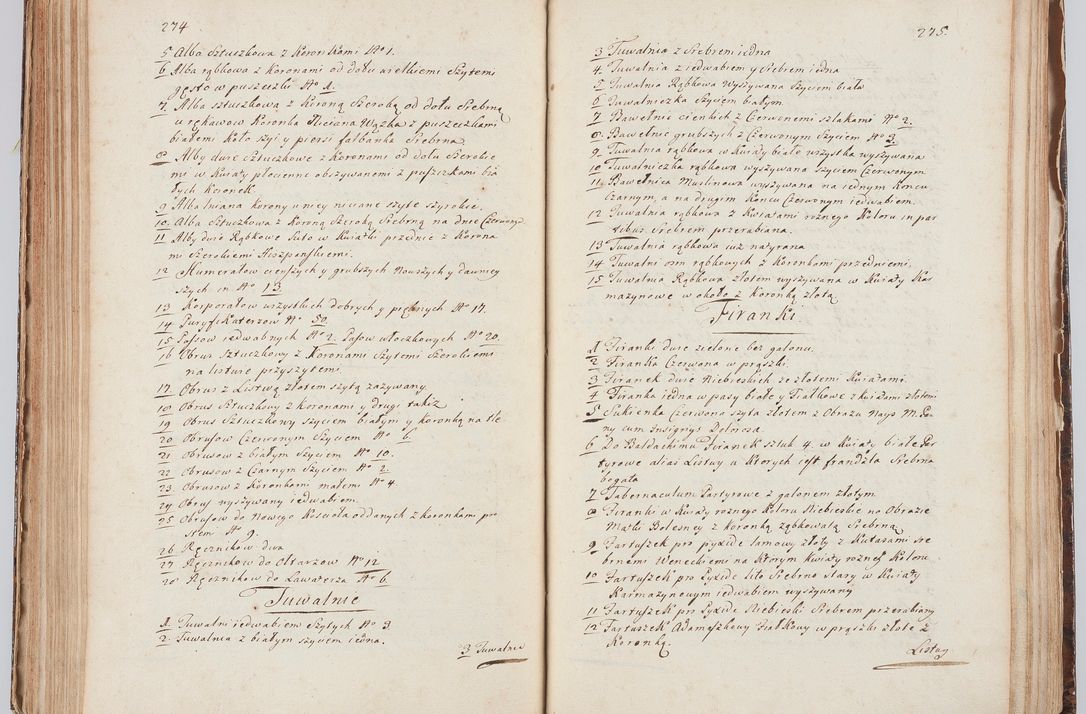 274
5 Alba Sztuczkowa z Koronkami No 1.
6 Alba rąbkowa z Koronami od dołu wielkiemi Szytemi
gęsto w puszeczki No 1.
7 Alba sztuczkowa z Koroną Szeroką od dołu Srebrną
u rękawow Koronka Niciana Wązka z puszeczkami
białemi Koło szyi y piersi falbanka Srebrna
8 Alby dwie Sztuczkowe z Koronami od dołu Szerokie
mi w Kwiaty płocienne obszywanemi z puszczkami bia
łych Koronek.
9 Alba lniana korony u niey niciane szyte szyrokie.
10 Alba Sztuczkowa z Koroną Szeroką Srebrną na dnie Czerwonym
11 Alby dwie Rąbkowe Suto w Kwiatki przednie z Korona
mi Szerokiemi Hiszpanskiemi.
12 Humerałow cienszych y grubszych Nowszych y dawniey
szych in No 13
13 Korporałow wszystkich dobrych y pięknych No 14.
14 Puryfikaterzow No 50
15 Pasow iedwabnych No 2. Pasow włoczkowych No 20.
16 Obrus Sztuczkowy z Koronami Szytemi Szerokiemi
na listwie przyszytemi.
17 Obrus z Listwą złotem szytą zazywany.
18 Obrus Sztuczkowy z koronami y drugi takiz
19 Obrus Sztuczkowy szyciem białym y koronką na tle
20 Obrusow Czerwonym Szyciem No 6.
21 Obrusow z białym Szyciem No 10.
22 Obrusow z Czarnym Szyciem No 2.
23 Obrusow z Koronkami małemi No 4.
24 Obrus wyszywany iedwabiem.
25 Obrusow do Nowego Koscioła oddanych z koronkami pro
stem No 9.
26 Ręcznikow dwa
27 Ręcznikow do Ołtarzow No 12
28 Ręcznikow do Lawaterza No 6
Tuwalnie
1. Tuwalni iedwabiem Szytych No 3
2. Tuwalnia z białym szyciem iedna.
3 Tuwalnia
275.
3 Tuwalnia z Srebrem iedna
4. Tuwalnia z iedwabiem y Srebrem iedna
5 Tuwalnia Rąbkowa Wyszywana Szyciem biała
6 Tuwalniczka Szyciem białym.
7 Bawelnic cienkich z Czerwonemi szlakami No 2.
8 Bawelnic grubszych z Czerwonym Szyciem No 3.
9 Tuwalnia rąbkowa w Kwiaty białe wszystka wyszywana
10 Tuwalniczka rąbkowa wyszywana Szyciem Czerwonym
11 Bawełnica Muslinowa wyszywana na iednym Koncu
Czarnym, a na drugim Koncu Czerwonym iedwabiem.
12 Tuwalnia rąbkowa z Kwiatami roznego Koloru in par
tibus Srebrem przerabiana.
13 Tuwalnia rąbkowa iuz natyrana
14 Tuwalni osm rąbkowych z Koronkami przedniemi,
15 Tuwalnia Rąbkowa złotem wyszywana w Kwiaty Kar
mazynowe w około z Koronką złotą
Firanki.
1 Firanki dwie zielone bez galonu.
2 Firanka Czerwona w prąszki.
3 Firanek dwie Niebieskich ze złotemi Kwiatami.
4 Firanka iedna w pasy białe y Fiałkowe z kwiatami złotemi
5 Sukienka Czerwona szyta złotem z Obrazu Nays M: Pan
ny cum Insignys Doloroza.
6 Do Baldachimu Firanek sztuk 4. w Kwiaty białe Par
tyrowe alias Listwy u Ktorych jest frandzla Srebrna
bogata
7 Tabernaculum Partyrowe z galonem złotym
8 Firanki w Kwiaty roznego Koloru Niebieskie na Obrazie
Matki Bolesney z Koronką ząbkowatą Srebrną
9 Fartuszek pro pyxide lamowy złoty z Kutasami sre
brnemi Weneckiemi na Ktorym Kwiaty roznego Koloru
10 Fartuszek pro Pyxide lito Srebrne stary w Kwiaty
Karmazynowym iedwabiem wyszywany
11 Fartuszek pro Pyxide Niebieski Srebrem przerabiany
12 Fartuszek Adamaszkowy Fiałkowy w prąszki złote z
Koronką.
Listwy